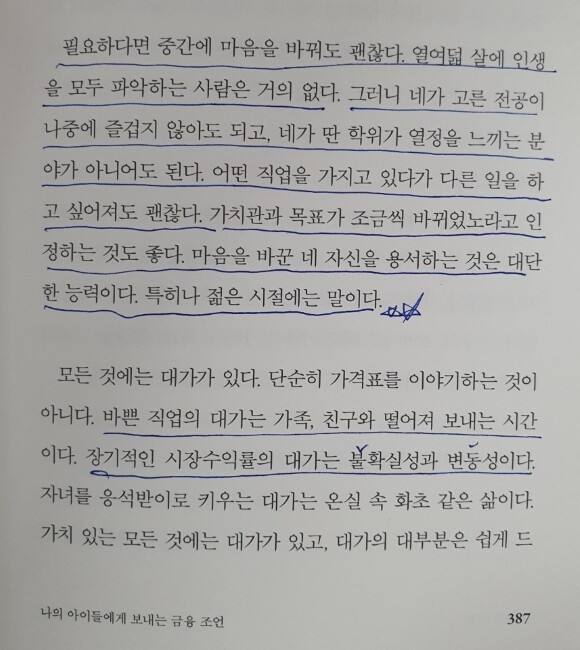 필요하다면 중간에 마음을 바꿔도 괜찮다. 열여덟 살에 인생
을 모두 파악하는 사람은 거의 없다. 그러니 네가 고른 전공이
나중에 즐겁지 않아도 되고, 네가 딴 학위가 열정을 느끼는 분
야가 아니어도 된다. 어떤 직업을 가지고 있다가 다른 일을 하
고 싶어져도 괜찮다. 가치관과 목표가 조금씩 바뀌었노라고 인
정하는 것도 좋다. 마음을 바꾼 네 자신을 용서하는 것은 대단
한 능력이다. 특히나 젊은 시절에는 말이다.
모든 것에는 대가가 있다. 단순히 가격표를 이야기하는 것이
아니다. 바쁜 직업의 대가는 가족, 친구와 떨어져 보내는 시간
이다. 장기적인 시장수익률의 대가는 불확실성과 변동성이다.
자녀를 응석받이로 키우는 대가는 온실 속 화초 같은 삶이다.
가치 있는 모든 것에는 대가가 있고, 대가의 대부분은 쉽게 드
나의 아이들에게 보내는 금융 조언
387